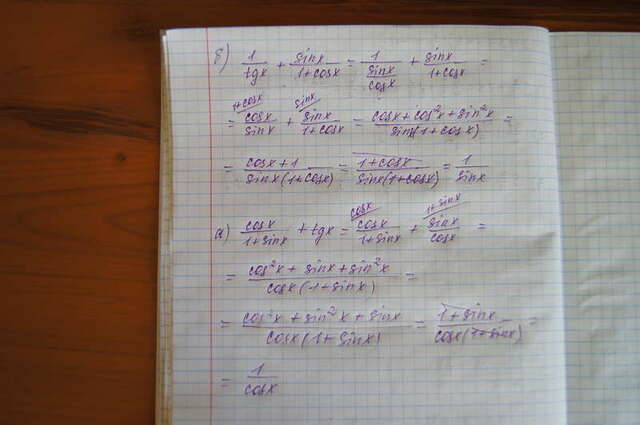 б) 1/tgx + sinx/(1+cosx) = 1/(sinx/cosx) + sinx/(1+cosx) =
= cosx/sinx (1+cosx + sinx/(1+cosx) (sinx = (cosx+cos²x+sin²x)/(sinx(1+cosx)) =
= (cosx+1)/(sinx(1+cosx)) = (1+cosx)/(sinx(1+cosx)) = 1/sinx
а) cosx/(1+sinx) + tgx = cosx/(1+sinx) (cosx + sinx/cosx (1+sinx =
= (cos²x+sinx+sin²x)/(cosx(1+sinx)) =
= (cos²x+sin²x+sinx)/(cosx(1+sinx)) = (1+sinx)/(cosx(1+sinx)) =
= 1/cosx